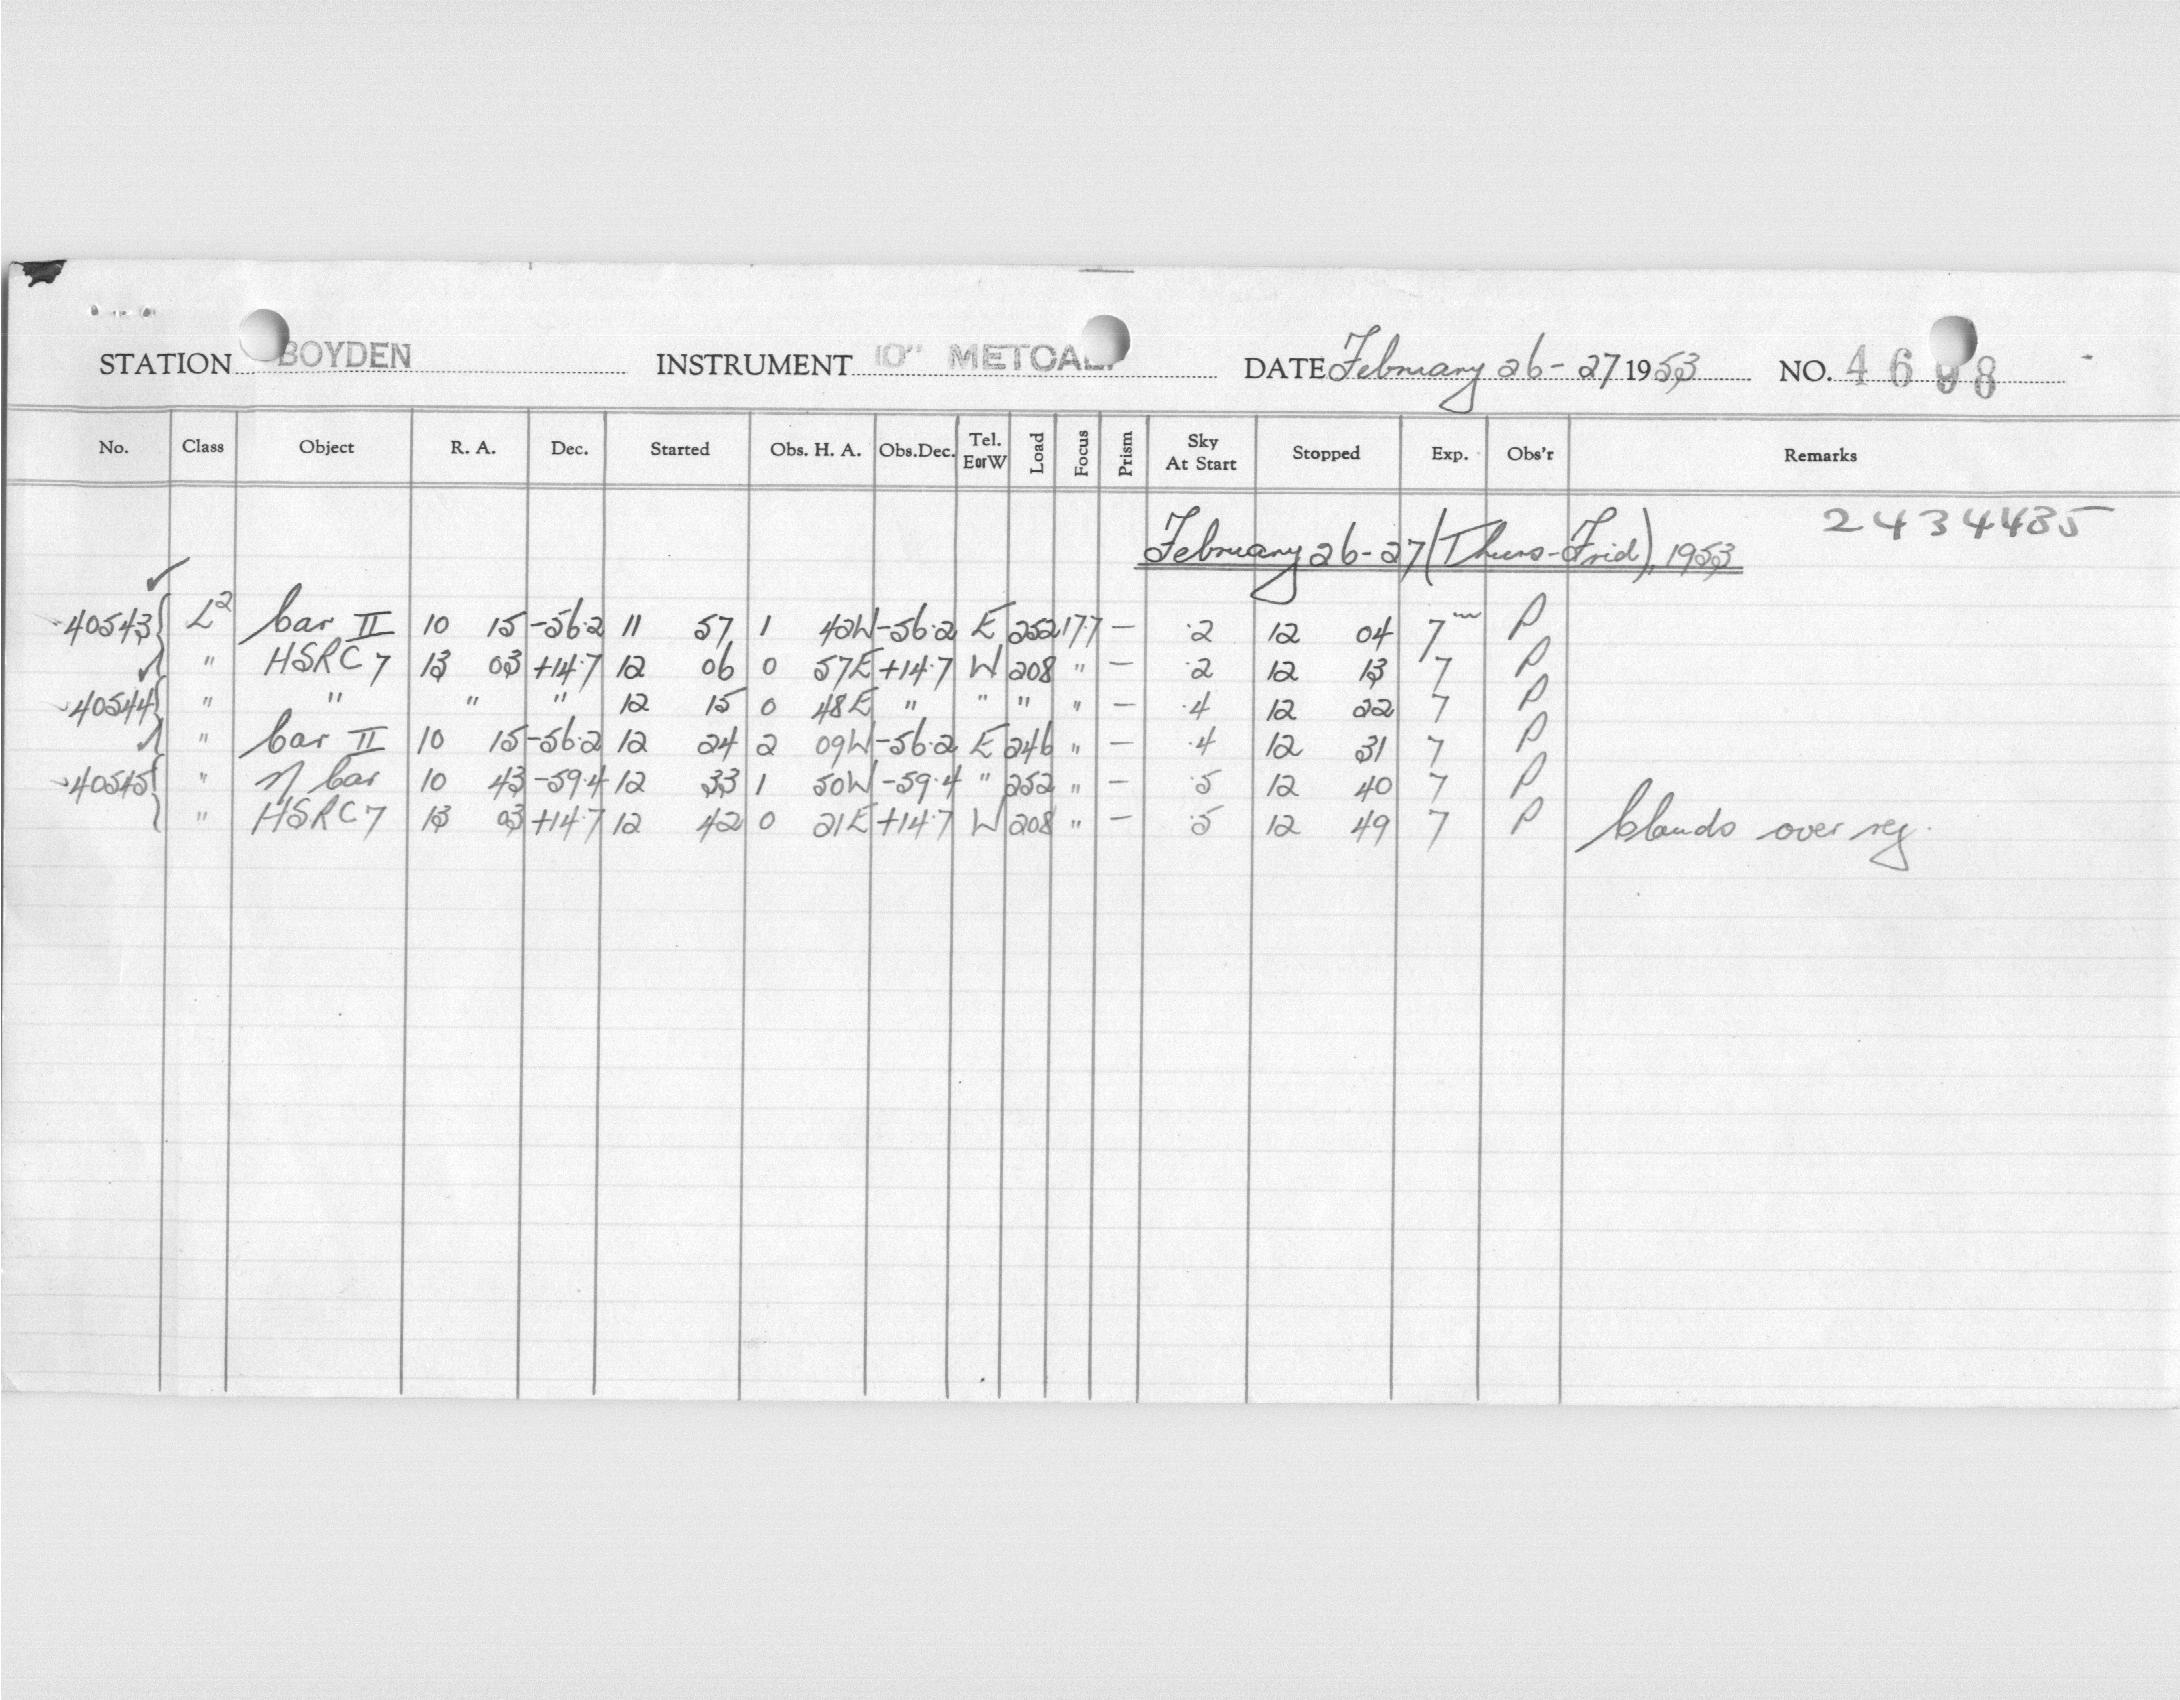 STATION BOYDEN INSTRUMENT 10" METCAL DATE February 26-27 1953 NO. 4698
No. Class Object R. A. Dec. Started Obs. H. A. Obs.Dec. Tel. EorW Load Focus Prism Sky At Start Stopped Exp. Obs'r Remarks
2434435
February 26-27 (Thurs-Frid), 1953
40543 L² Car II 10 15 -56.2 11 57 1 42W -56.2 E 252 17.7 — .2 12 04 7ᵐ P
" HSRC 7 13 03 +14.7 12 06 0 57E +14.7 W 208 " — .2 12 13 7 P
40544 " " " " 12 15 0 48E " " " " — .4 12 22 7 P
" Car II 10 15 -56.2 12 24 2 09W -56.2 E 246 " — .4 12 31 7 P
40545 " η Car 10 43 -59.4 12 33 1 50W -59.4 " 252 " — .5 12 40 7 P
" HSRC 7 13 03 +14.7 12 42 0 21E +14.7 W 208 " — .5 12 49 7 P Clouds over reg.